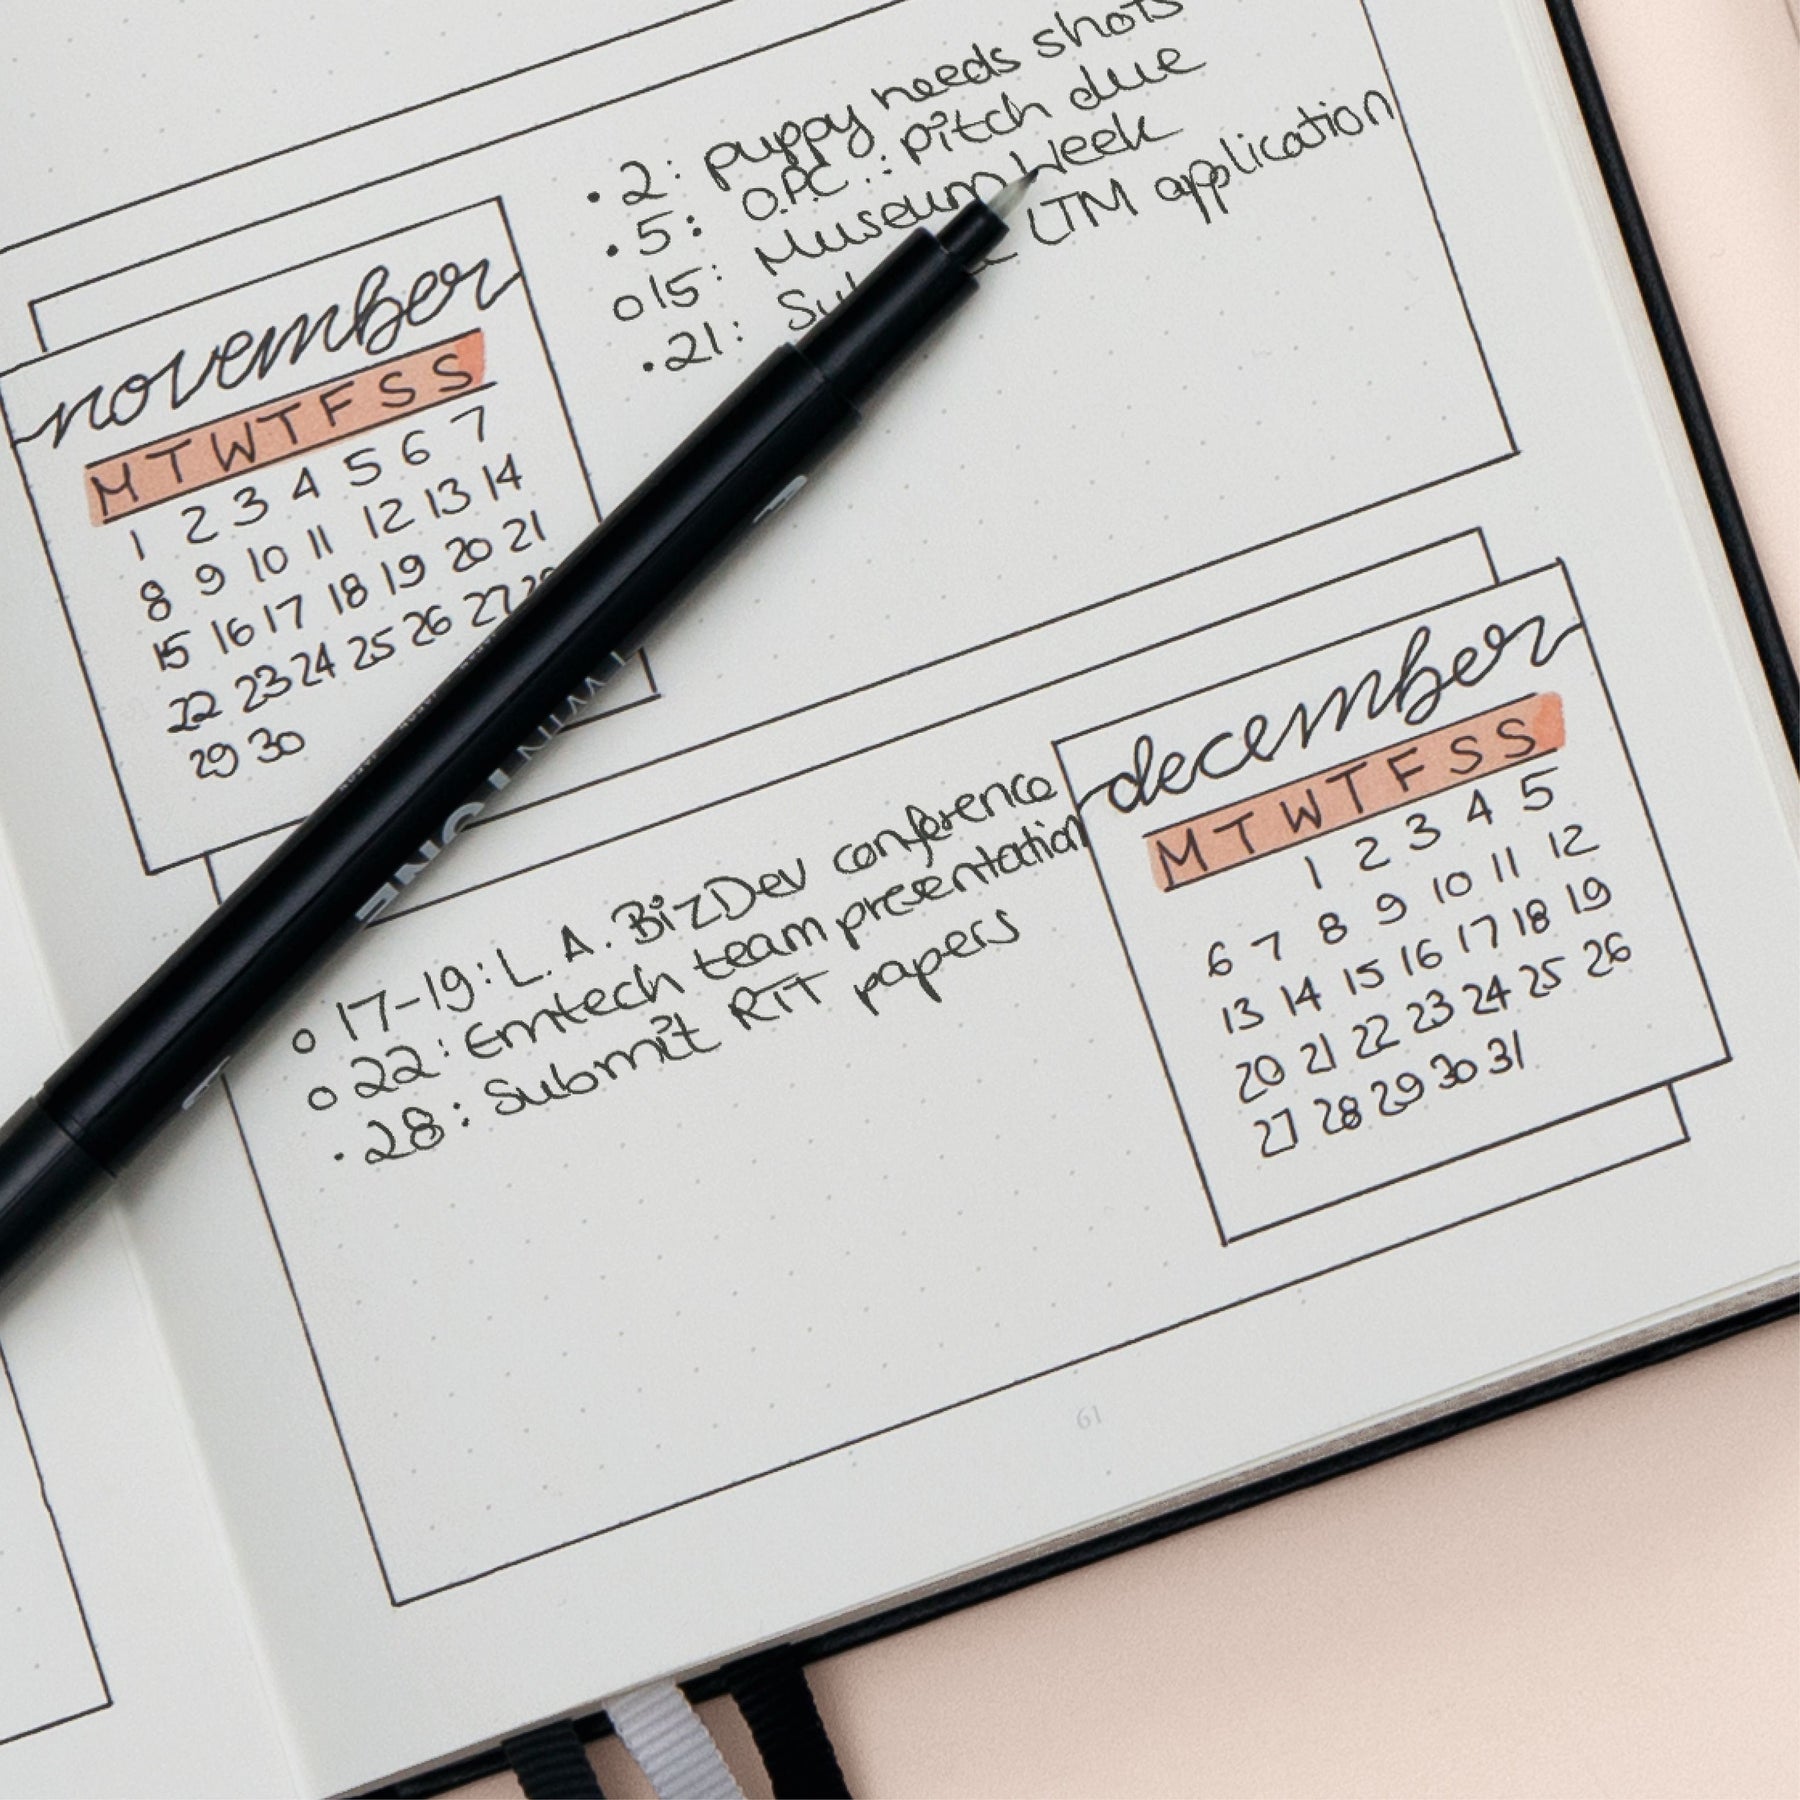 november
M T W T F S S
1 2 3 4 5 6 7
8 9 10 11 12 13 14
15 16 17 18 19 20 21
22 23 24 25 26 27
29 30
• 2: puppy needs shots
• 5: O.P.C.: pitch due
o 15: Museum Week
• 21: LTM application
o 17-19: L.A. BizDev conference
o 22: Emtech team presentation
• 28: Submit RTT papers
december
M T W T F S S
1 2 3 4 5
6 7 8 9 10 11 12
13 14 15 16 17 18 19
20 21 22 23 24 25 26
27 28 29 30 31
61